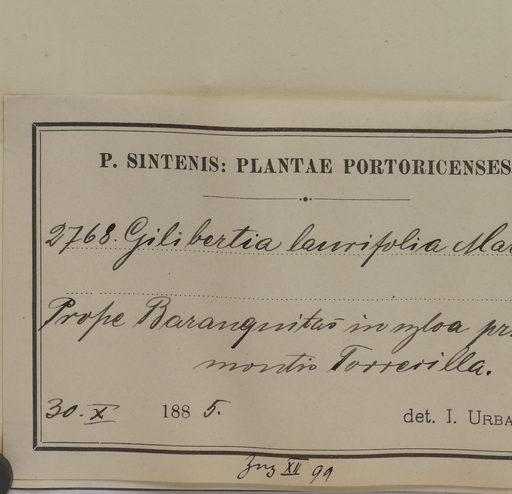 P. SINTENIS: PLANTAE PORTORICENSES
2768. Gilibertia laurifolia Mar
Prope Baranquitas in sylva pr
montis Torrecilla.
30. X. 1885.
det. I. URBA
XII 99